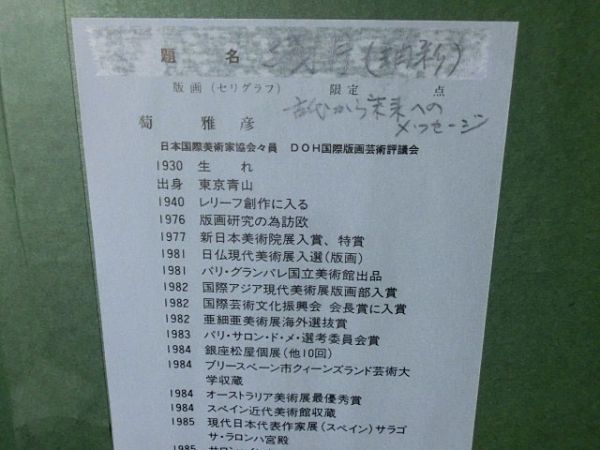 題 名
版画(セリグラフ) 限定 点
古代から未来への
メッセージ
菊 雅彦
日本国際美術家協会々員 DOH国際版画芸術評議会
1930 生 れ
出身 東京青山
1940 レリーフ創作に入る
1976 版画研究の為訪欧
1977 新日本美術院展入賞、特賞
1981 日仏現代美術展入選(版画)
1981 パリ・グランパレ国立美術館出品
1982 国際アジア現代美術展版画部入賞
1982 国際芸術文化振興会 会長賞に入賞
1982 亜細亜美術展海外選抜賞
1983 パリ・サロン・ド・メ・選考委員会賞
1984 銀座松屋個展(他10回)
1984 ブリースベーン市クィーンズランド芸術大
学収蔵
1984 オーストラリア美術展最優秀賞
1984 スペイン近代美術館収蔵
1985 現代日本代表作家展(スペイン)サラゴ
サ・ラロンハ宮殿
1985